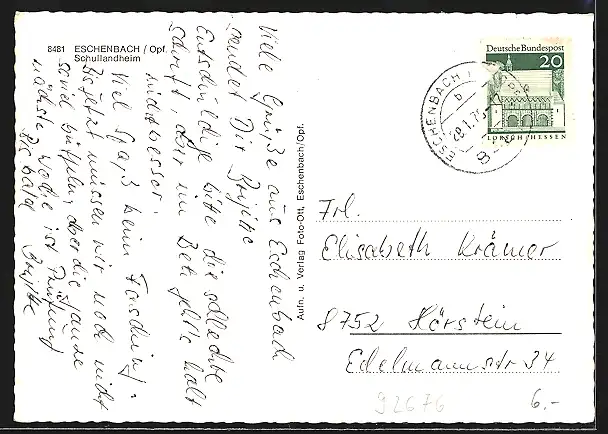 8481 ESCHENBACH / Opf.
Schullandheim
Viele Grüße aus Eschenbach
sendet Dir Brigitte
Entschuldige bitte die schlechte
Schrift, denn im Bett geht's halt
nicht besser.
Viel Spaß beim Fasching!
müssen wir noch nicht
soviel büffeln, aber die ganze
nächste Woche ist Prüfung
Bis bald Brigitte
Aufn. u. Verlag Foto-Ott, Eschenbach/Opf.
Deutsche Bundespost
20
LORSCH/HESSEN
ESCHENBACH
b
8
Frl.
Elisabeth Krämer
8752 Hörstein
Edelmannstr 34
92676
6.-